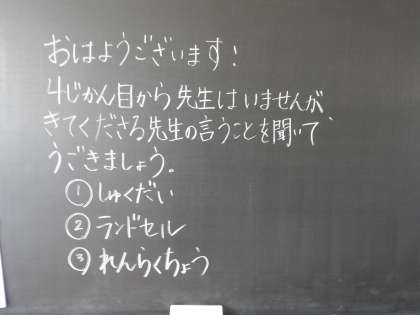 おはようございます!
4じかん目から先生はいませんが、
きてくださる先生の言うことを聞いて、
うごきましょう。
①しゅくだい
②ランドセル
③れんらくちょう